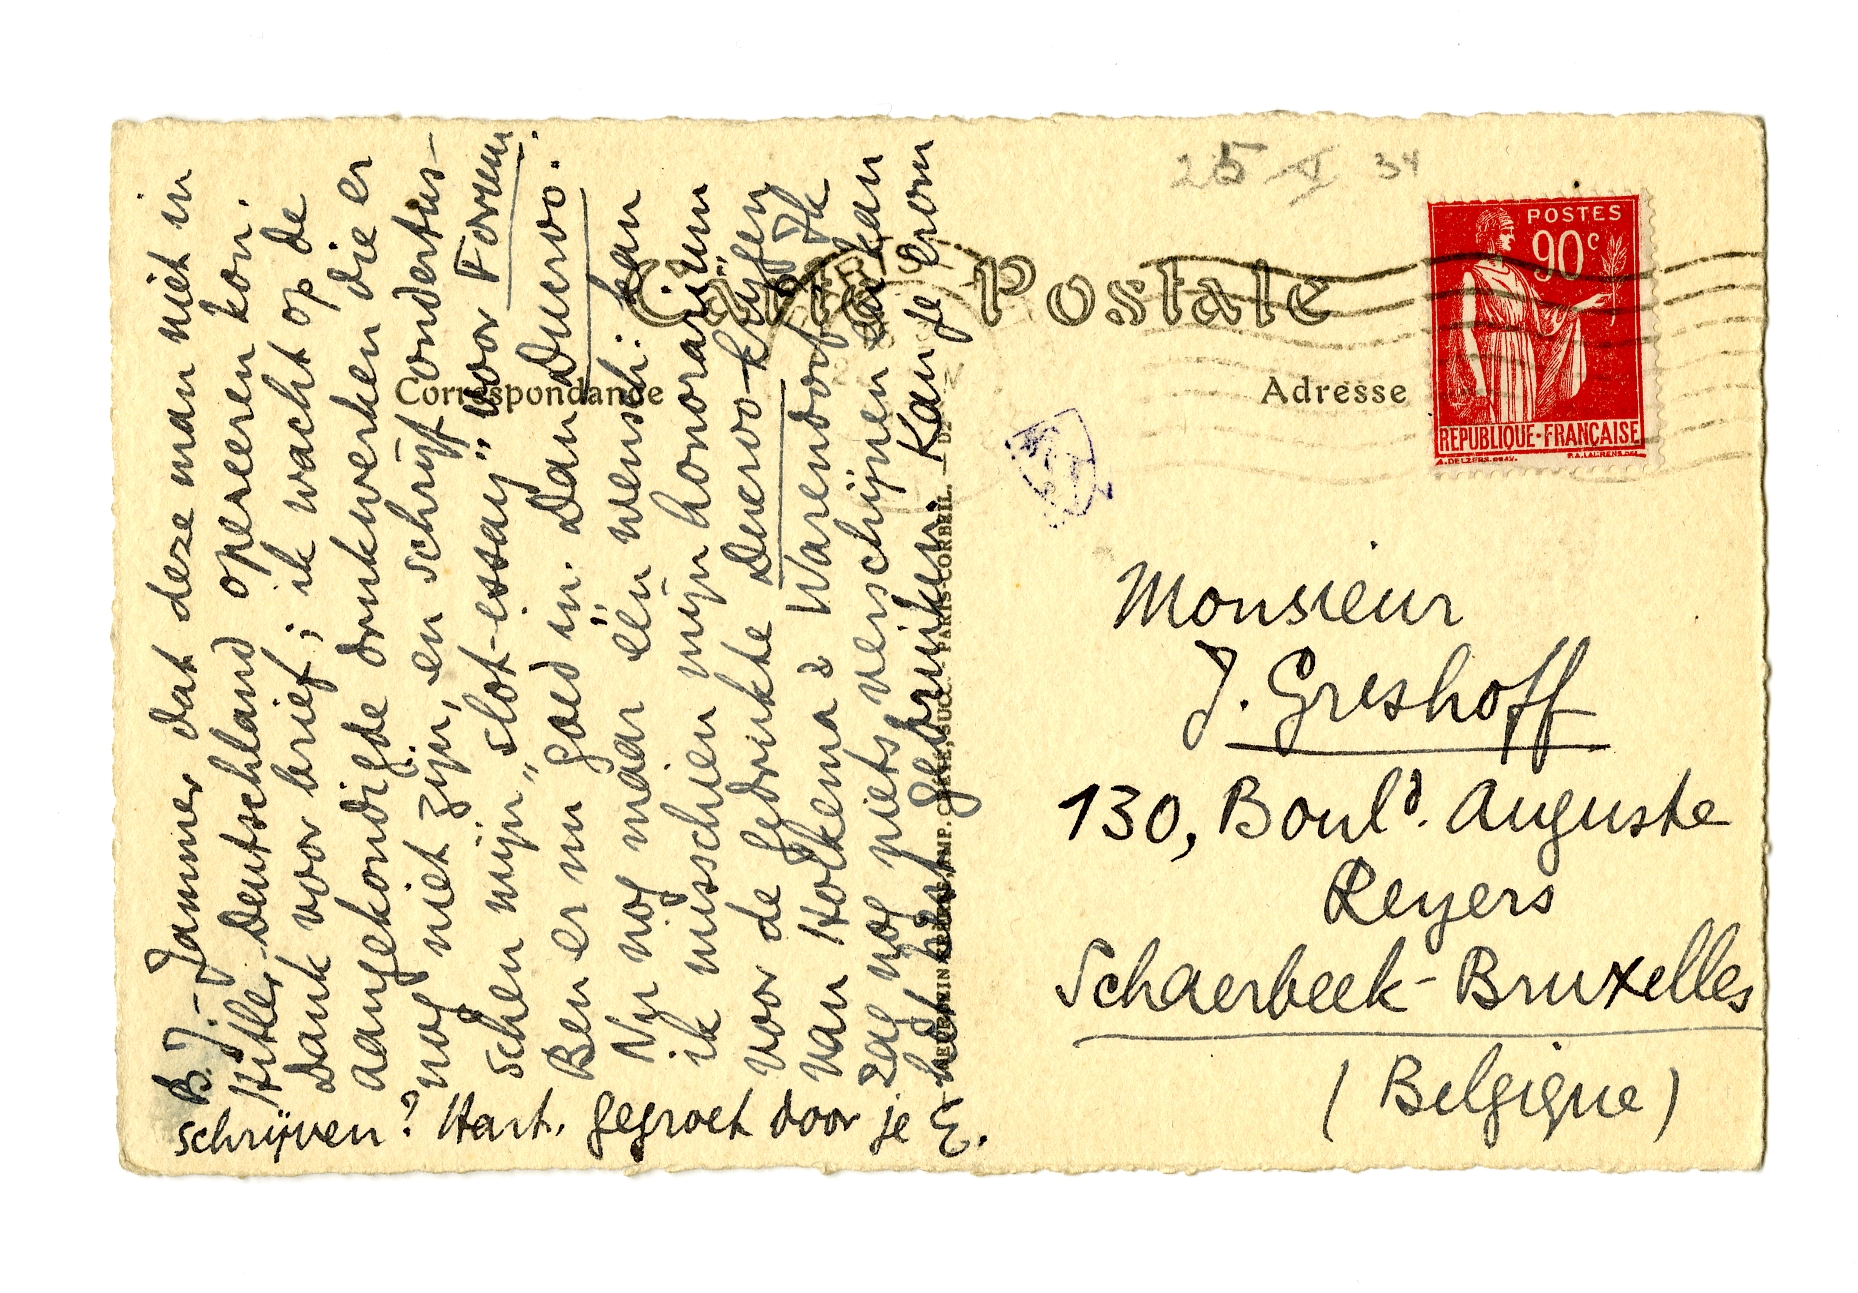 B. J. - Jammer dat deze man niet in
Hitler-Deutschland opereeren kon.
Dank voor brief; ik wacht op de
aangekondigde drukwerken die er
nog niet zijn, en schrijf ondertus-
schen mijn „slot-essay” voor Forum.
Ben er nu „goed in”. Dan Ducroo.
Nu nog maar één wensch: kan
ik misschien mijn honorarium
voor de gedrukte Ducroo krijgen
van Holkema & Warendorf? Ik
zag nog niets verschijnen en kan
het best gebruiken. Kan je erom
schrijven? Hart. gegroet door je E.
Carte Postale
Correspondance
Adresse
PARIS-CORBEIL
25 V 34
POSTES
90c
REPUBLIQUE-FRANÇAISE
Monsieur
J. Greshoff
130, Boul<sup>d</sup>. Auguste
Reyers
Schaerbeek-Bruxelles
(Belgique)